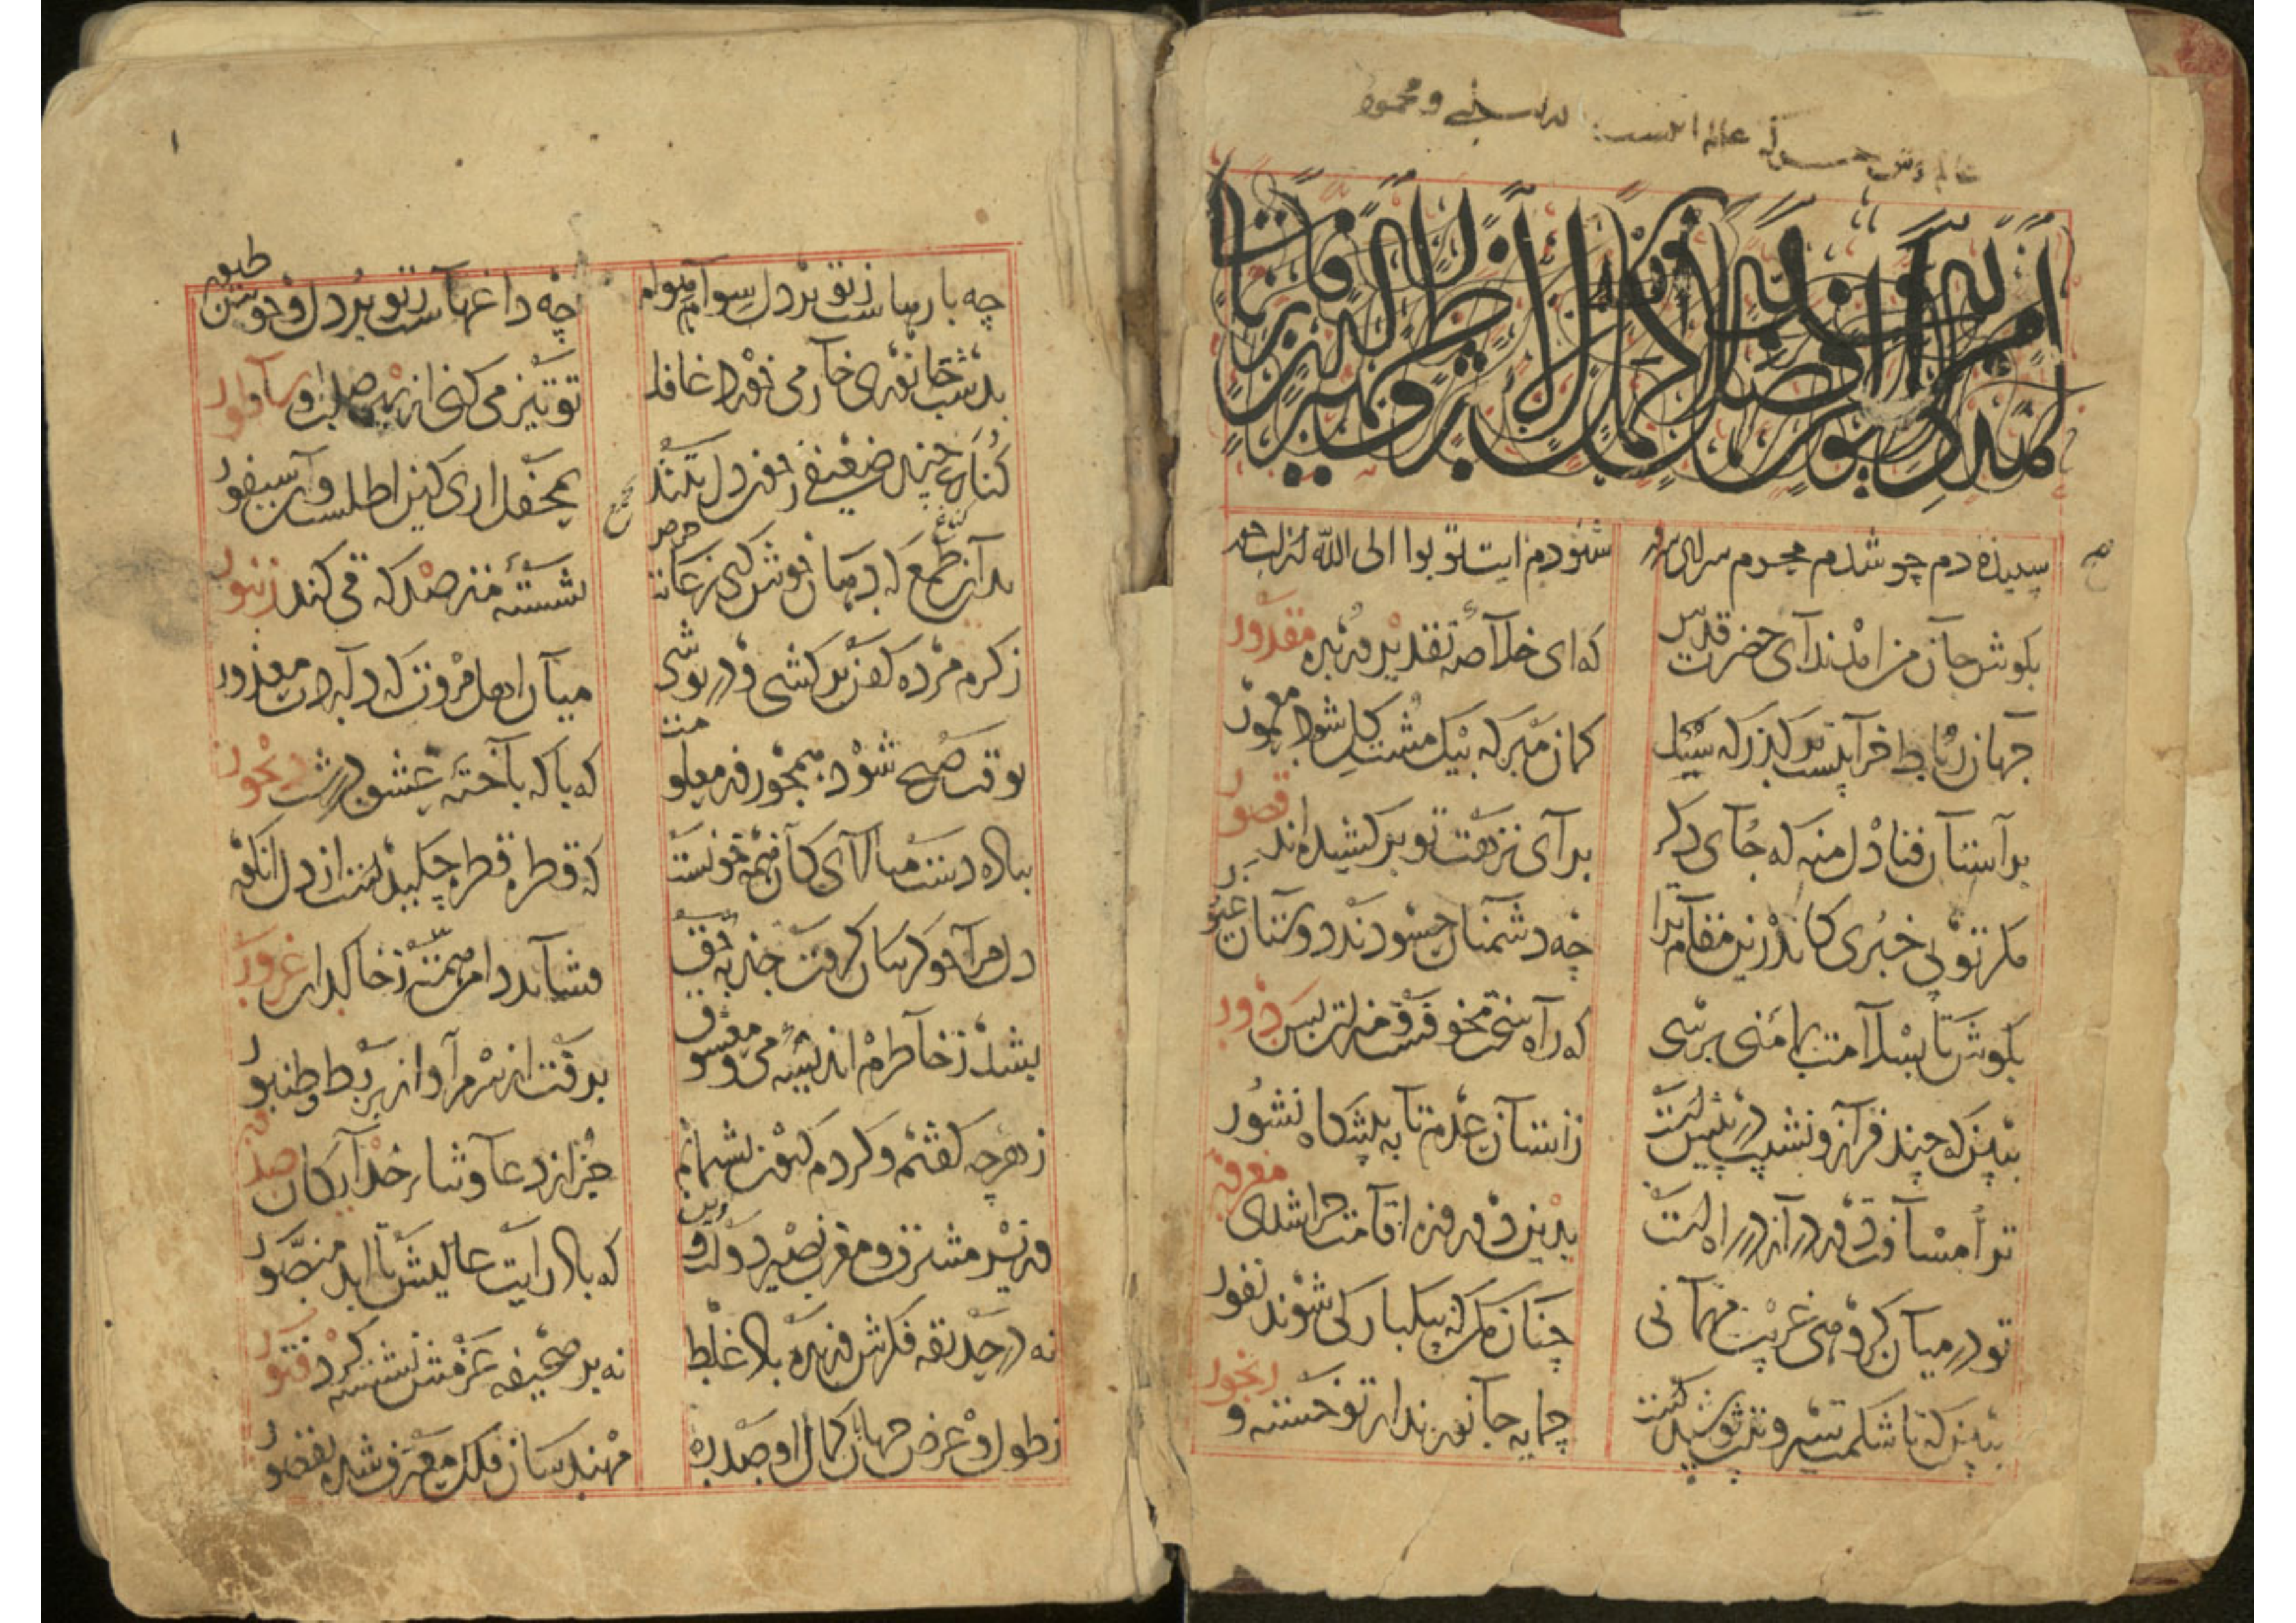 سپیده دم چو شدم محرم سرای سرور
شنودم ایت توبوا الی الله از لب حور
بکوش جان من امد ندای حضرت قدس
که ای خلاصه تقدیر و زبده مقدور
جهان رباط خرابیست بر کذر که سیل
کمان مبر که بیک مشت کل شود معمور
بر آستان فنا دل منه که جای دکر
برای نزهت تو بر کشیده اند قصور
مکر تو بی خبری کاندرین مقام ترا
چه دشمنان حسودند و دوستان غیور
بکوش تا بسلامت بمامنی برسی
که راه سخت مخوفست و منزلت بس دور
ببین که چند فراز و نشیب در پیشست
ز آستان عدم تا به پیشکاه نشور
ترا مسافت دور دراز در راه است
بدین دو روزه اقامت چرا شدی مغرور
تو در میان کروهی غریب مهمانی
چنان مکن که بیکبارکی شوند نفور
ببین که تا شکمت سیر و تنت پوشیدست
چه مایه جانور ند از تو خسته و رنجور
۱
چه بارهاست ز تو بر دل سوام و هوام
چه داغهاست ز تو بر دل وحوش و طیور
بدشت جانوری خار می خورد غافل
تو تیز می کنی از بهر صلب او ساطور
کناغ چند ضعیفی ز خون دل بتند
بمحفل اری کین اطلس است و آن سیفور
بدان طمع که دهان خوش کنی ز غایت حرص
نشستهٔ مترصد که قی کند زنبور
ز کرم مرده کفن بر کشی و در پوشی
میان اهل مروت که داردت معذور
بوقت صبح شود همچو روز معلومت
که با که باختهٔ عشق در شب دیجور
بباده دست میالای کان همه خونست
که قطره قطره چکیدست از دل انکور
دل مرا چو کریبان کرفت جذبه حق
فشاند دامن همت ز خاکدان غرور
بشد ز خاطرم اندیشه می و معشوق
برفت از سرم آواز بربط و طنبور
ز هرچه کفتم و کردم کنون پشیمانم
جز از دعا و ثناء خدایکان صدور
وزیر مشرق و مغرب نصیر دولت و دین
که باد رایت عالیش تا ابد منصور
نه در حدیقه فکرش وزیده باد غلط
نه بر صحیفه عزمش نشسته کرد فتور
ز طول و عرض جهان کمال او صد ره
مهندسان فلک معترف شده بقصور